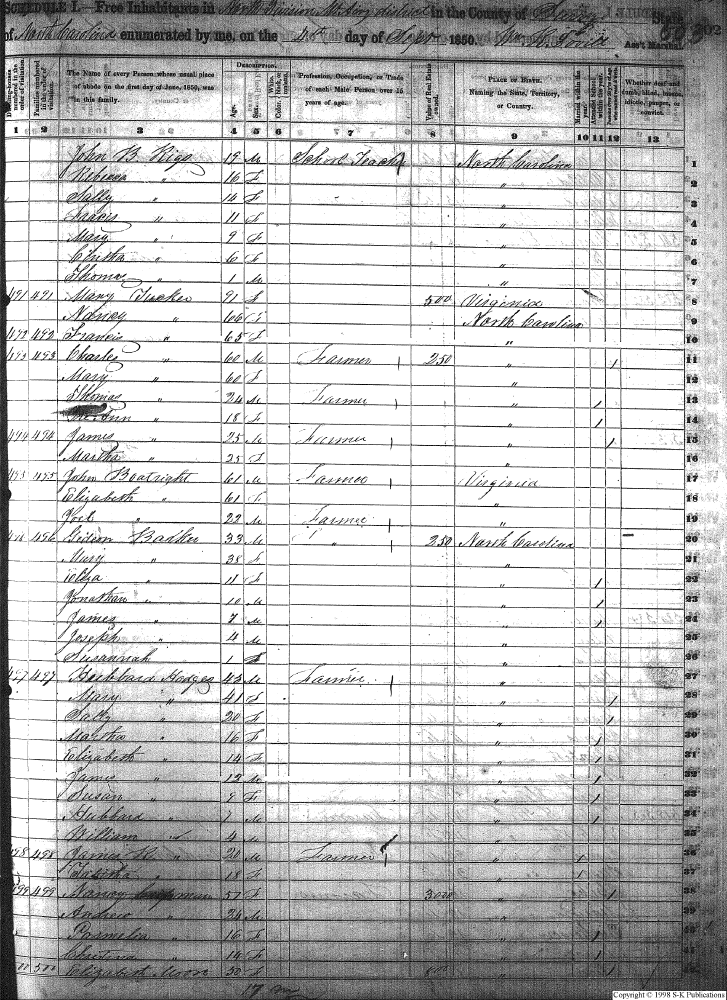 SCHEDULE I.—Free Inhabitants in North Division in the County of Surry State
of North Carolina enumerated by me, on the day of Sept 1850. Ass't Marshal.
Dwelling-houses numbered in the order of visitation. Families numbered in the order of visitation. The Name of every Person whose usual place of abode on the first day of June, 1850, was in this family. Description. Age. Sex. Color, Profession, Occupation, or Trade of each Male Person over 15 years of age. Value of Real Estate owned. Place of Birth. Naming the State, Territory, or Country. Married within the year. Whether deaf and dumb, blind, insane, idiotic, pauper, or convict.
1 2 3 4 5 6 7 8 9 10 11 12 13
John B Rigs 19 M School Teacher North Carolina 1
Rebecca " 16 F " 2
Sally " 14 F " 3
" 11 F " 4
Mary " 9 F " 5
" 6 F " 6
Thomas " 1 M " 7
491 491 Mary Tucker 91 F 500 Virginia 8
Nancy " 66 F North Carolina 9
492 492 Francis " 65 F " 10
493 493 Charles " 60 M Farmer 250 " 1 11
Mary " 60 F " 12
Thomas " 24 M Farmer " 1 13
Ann " 18 F " 1 14
494 494 James " 25 M Farmer " 1 15
Martha " 25 F " 16
495 495 John Boatright 61 M Farmer Virginia 17
Elizabeth " 61 F " 18
Joel " 22 M Farmer " 19
496 496 Barker 33 M " 250 North Carolina 20
Mary " 38 F " 21
Eliza " 11 F " 1 22
Jonathan " 10 M " 1 23
James " 7 M " 1 24
Joseph " 4 M " 25
Susannah 1 F " 26
497 497 Hubbard Hodges 43 M Farmer " 27
Mary " 41 F " 1 28
Sally " 20 F " 1 29
Martha " 16 F " 1 30
Elizabeth " 14 F " 1 31
James " 12 M " 1 32
Susan " 9 F " 1 33
Hubbard " 7 M " 1 34
William " 4 M " 35
498 498 James R. " 20 M Farmer " 1 36
Tabitha " 18 F " 1 37
499 499 Nancy 57 F 3000 " 1 38
Andrew " 24 M " 39
Parmelia " 16 F " 1 40
Christina " 14 F " 1 41
500 500 Elizabeth Moore 50 F " 1 42
17 m
Copyright © 1998 S-K Publications